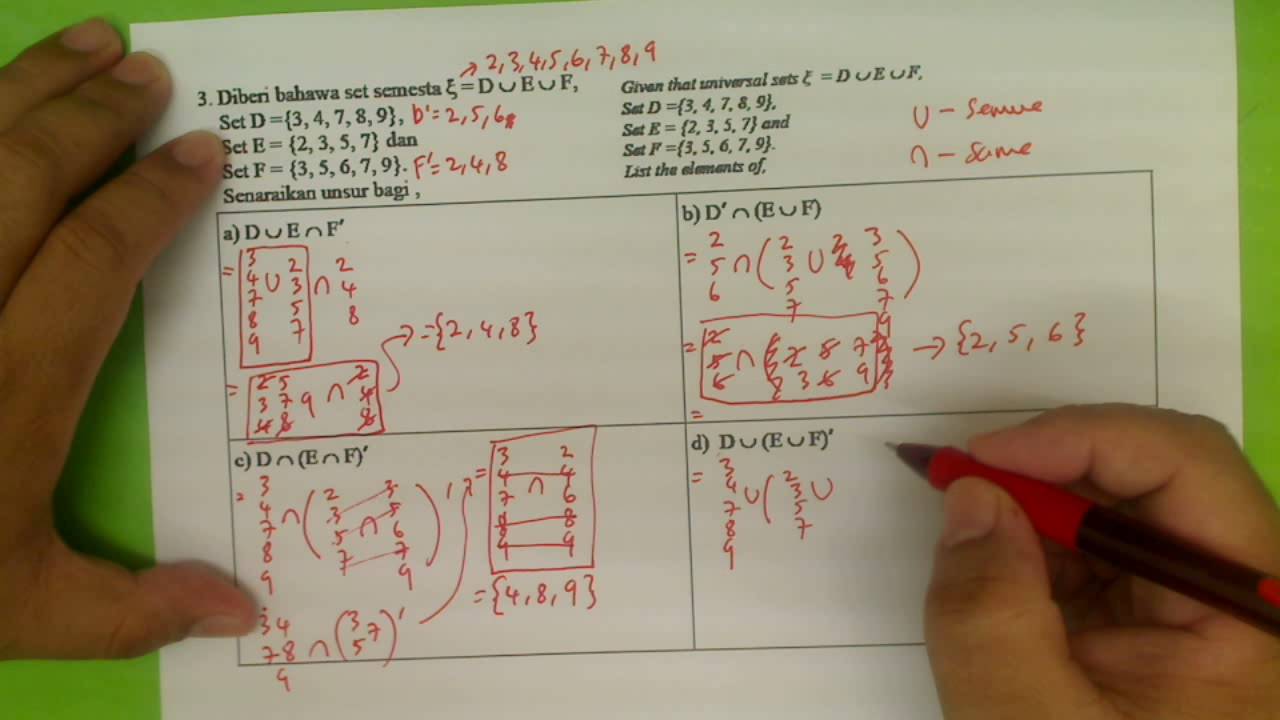 → 2, 3, 4, 5, 6, 7, 8, 9
3. Diberi bahawa set semesta ξ = D ∪ E ∪ F,
Set D = {3, 4, 7, 8, 9}, D' = 2, 5, 6
Set E = {2, 3, 5, 7} dan
Set F = {3, 5, 6, 7, 9}. F' = 2, 4, 8
Senaraikan unsur bagi ,
Given that universal sets ξ = D ∪ E ∪ F,
Set D = {3, 4, 7, 8, 9},
Set E = {2, 3, 5, 7} and
Set F = {3, 5, 6, 7, 9}.
List the elements of,
∪ – semua
∩ – sama
a) D ∪ E ∩ F'
3
4 ∪ 2 2
= 7 3 ∩ 4
8 5 8
9 7
= 2 5 2
3 7 9 ∩ 4
4 8 8
→ = {2, 4, 8}
b) D' ∩ (E ∪ F)
2 2 3
= 5 ∩ ( 3 ∪ 5 )
6 5 6
7 7
9
→ {2, 5, 6}
=
c) D ∩ (E ∩ F)'
= 3
4 2 3
7 ∩ ( 3 5 ) '
8 5 ∩ 6
9 7 7
9
3 4 3 7
7 8 ∩ ( 5 ) '
9
= 3 2
4 4
7 ∩ 6
8 8
9 9
= {4, 8, 9}
d) D ∪ (E ∪ F)'
= 3 2
4 ∪ ( 3 ∪
7 5
8 7
9